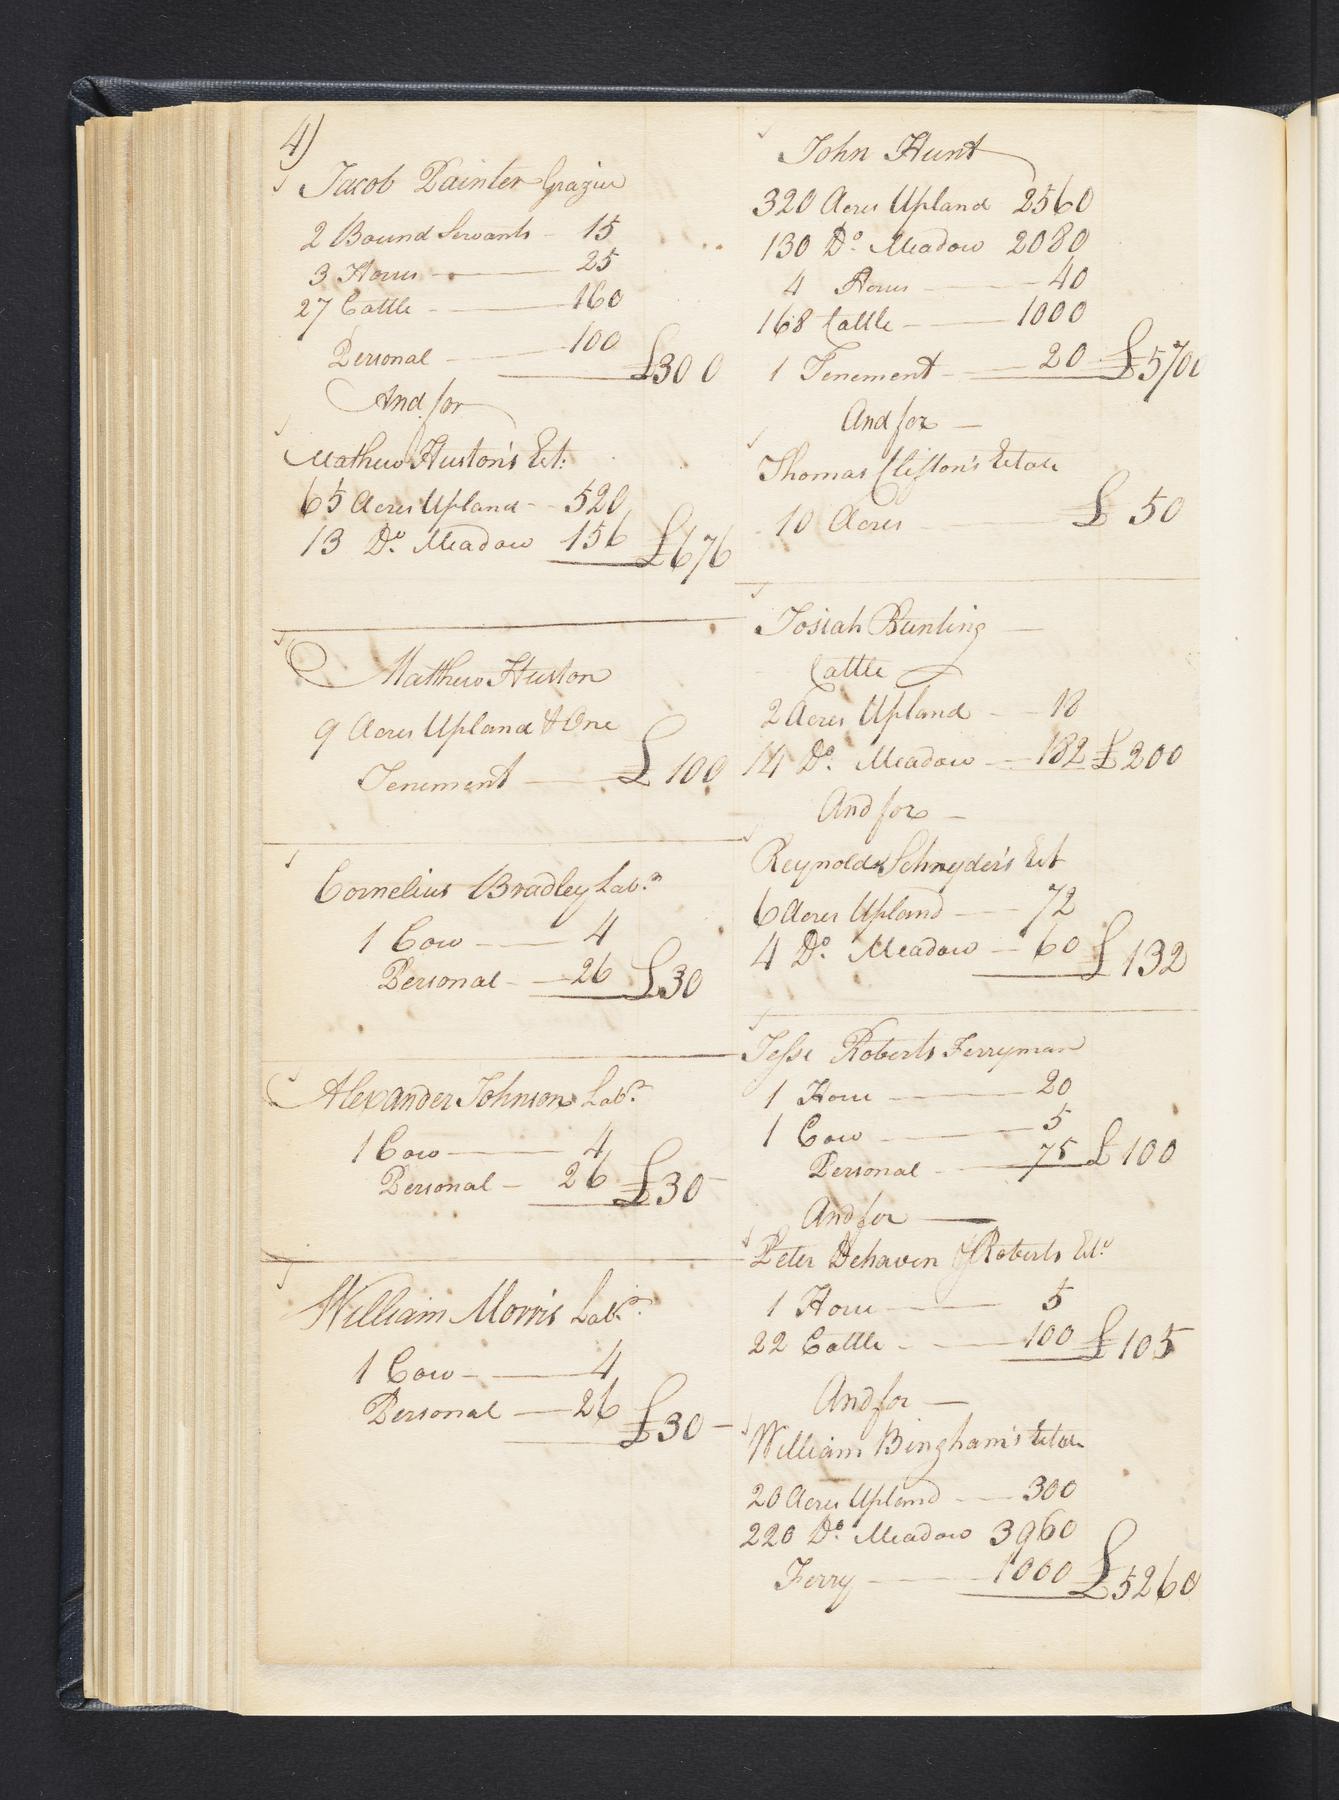 4)
Jacob Painter Grazier
2 Bound Servants - 15
3 Horses - 25
27 Cattle - 160
Personal - 100 £300
And for
Mathew Huston's Est:
65 Acres Upland - 520
13 Do. Meadow 156 £676
Matthew Huston
9 Acres Upland & One
Tenement - £100
Cornelius Bradley Labr.
1 Cow - 4
Personal - 26 £30
Alexander Johnson Labr.
1 Cow - 4
Personal - 26 £30
William Morris Labr.
1 Cow - 4
Personal - 26 £30 -
John Hunt
320 Acres Upland 2560
130 Do. Meadow 2080
4 Horses - 40
168 Cattle - 1000
1 Tenement - 20 £5700
And for -
Thomas Clifton's Estate
10 Acres - £50
Josiah Bunting -
Cattle
2 Acres Upland - 18
14 Do. Meadow - 182 £200
And for -
Reynold Schnyder's Est
6 Acres Upland - 72
4 Do. Meadow - 60 £132
Jesse Roberts Ferryman
1 Horse - 20
1 Cow - 5
Personal - 75 £100
And for -
Peter Dehaven Roberts Este
1 Horse - 5
22 Cattle - 100 £105
And for -
William Bingham's Estate
20 Acres Upland - 300
220 Do. Meadow 3960
Ferry - 1000 £5260